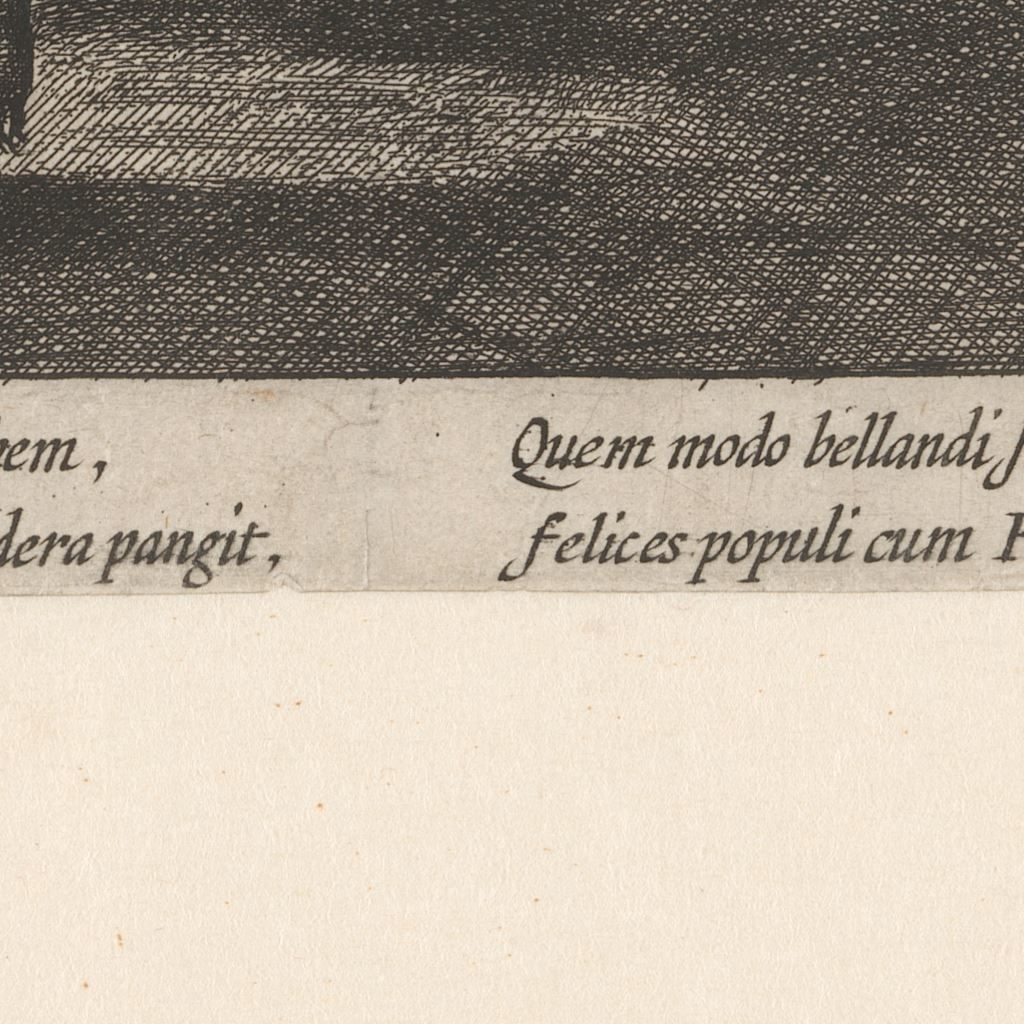 pangit,
Quem modo bellandi
felices populi cum